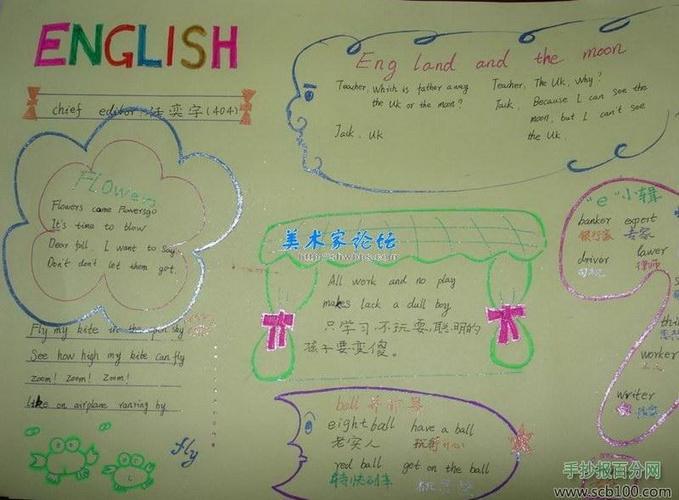 ENGLISH
chief editor (404)
Flower
Flowers came Flowersgo
It's time to blow
Dear fall, I want to say
Don't don't let them got.
Fly my kite in the sky
See how high my kite can fly
Zoom! Zoom! Zoom!
Like on airplane ranring by
fly
England and the moon
Teacher, which is father away
the UK or the moon?
Jack, UK
Teacher, The UK, why?
Jack, Because I can see the
moon, but I can't see
the UK.
美术家论坛
All work and no play
makes lack a dull boy
只学习,不玩耍,聪明的
孩子要变傻。
ball
eightball have a ball
老实人
red ball get on the ball
特快列车
"e"小辑
banker expert
银行家 专家
driver lawer
司机 律师
worker
writer
手抄报百分网
www.scb100.com